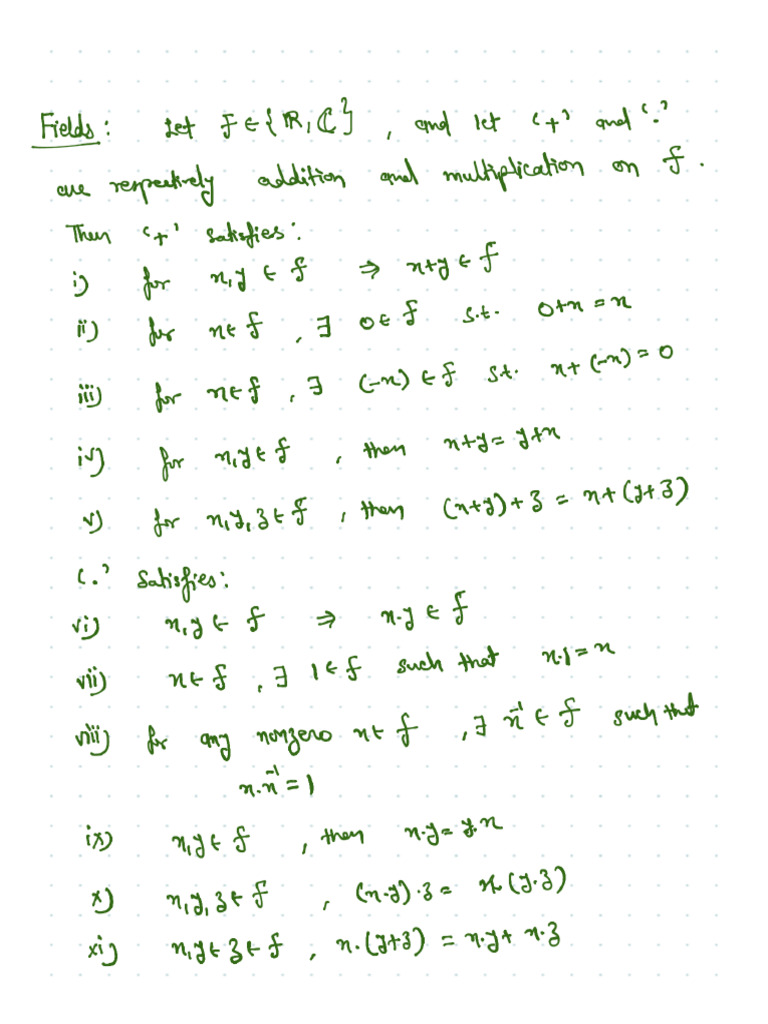 Fields: Let F ∈ {ℝ, ℂ}, and let '+' and '.'
are respectively addition and multiplication on F.
Then '+' satisfies:
i) for x, y ∈ F ⇒ x+y ∈ F
ii) for x ∈ F, ∃ 0 ∈ F s.t. 0+x = x
iii) for x ∈ F, ∃ (-x) ∈ F s.t. x+(-x) = 0
iv) for x, y ∈ F, then x+y = y+x
v) for x, y, z ∈ F, then (x+y)+z = x+(y+z)
'.' Satisfies:
vi) x, y ∈ F ⇒ x.y ∈ F
vii) x ∈ F, ∃ 1 ∈ F such that x.1 = x
viii) for any nonzero x ∈ F, ∃ x⁻¹ ∈ F such that
x.x⁻¹ = 1
ix) x, y ∈ F, then x.y = y.x
x) x, y, z ∈ F, (x.y).z = x.(y.z)
xi) x, y ∈ z ∈ F, x.(y+z) = x.y + x.z